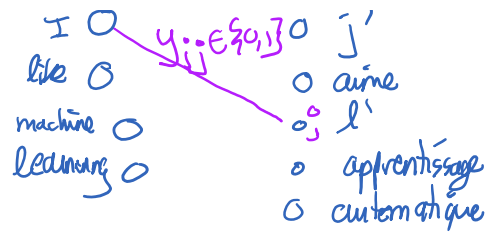 I
like
machine
learning
y_{ij} ∈ {0,1}
j
j'
aime
l'
apprentissage
automatique